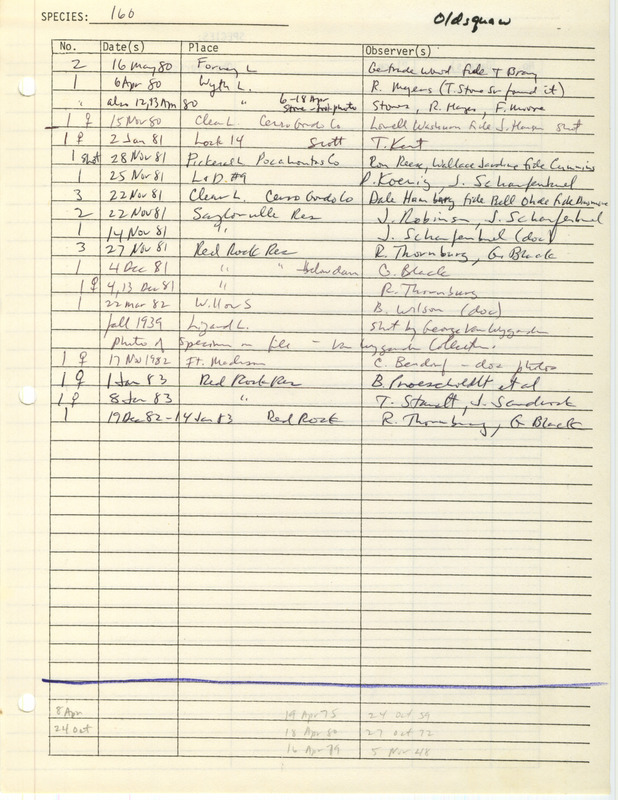 SPECIES: 160 Oldsquaw
No. Date(s) Place Observer(s)
2 16 May 80 Forney L Gertrude Wurd fide T Bray
1 6 Apr 80 Wyth L. R. Meyers (T. Stone Sr found it)
" also 12,13 Apr 80 " 6-18 Apr Stone - photo Stones, R. Myers, F. Moore
1 ♀ 15 Nov 80 Clear L. Cerro Gordo Co Lowell Washburn fide J. Hansen shot
1 ♀ 2 Jan 81 Lock 14 Scott T. Kent
1 shot 28 Nov 81 Pickerel L Pocahontas Co Ron Reex, Wallace Jardine fide Cummins
1 25 Nov 81 L & D. #9 P. Koenig, J. Schaufenbuel
3 22 Nov 81 Clear L. Cerro Gordo Co Dale Hamburg fide Bell Ohde fide
2 22 Nov 81 Saylorville Res J. Robinson, J. Schaufenbuel
1 14 Nov 81 " J. Schaufenbuel (doc)
3 27 Nov 81 Red Rock Res R. Thornburg, G. Black
1 4 Dec 81 " " below dam G. Black
1 ♀ 4,13 Dec 81 R. Thornburg
1 22 Mar 82 Willow S B. Wilson (doc)
fall 1939 Lizard L. shot by George Van Wyngarden
photo of specimen on file - Van Wyngarden Collection.
1 ♀ 17 Nov 1982 Ft. Madison C. Bendorf - doc photos
1 ♀ 1 Jan 83 Red Rock Res B. Proescholdt et al
1 ♀ 8 Jan 83 " T. Staudt, J. Sandrock
1 19 Dec 82 - 14 Jan 83 Red Rock R. Thornburg, G. Black
8 Apr 19 Apr 75 24 Oct 59
24 Oct 18 Apr 80 27 Oct 72
16 Apr 79 5 Nov 48